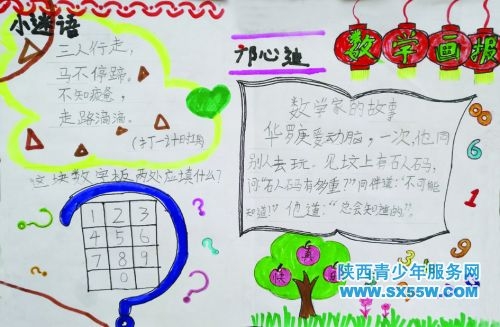 小谜语
三人行走，
马不停蹄。
不知疲惫，
走路滴滴。
这块数字板两处应填什么？
1 2 3
4 5 6
7 8 9
0
数学画报
数学家的故事
华罗庚爱动脑，一次，他同
别人去玩。见坟上有石人石马，
问“石人石马有多重？”同伴道：“不可能
知道！”他道：“总会知道的”。
8
6
1
9
3
陕西青少年服务网
www.sx55w.com